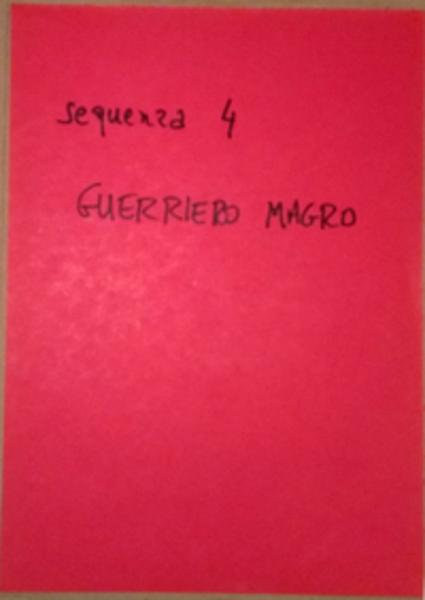 sequenza 4
GUERRIERO MAGRO